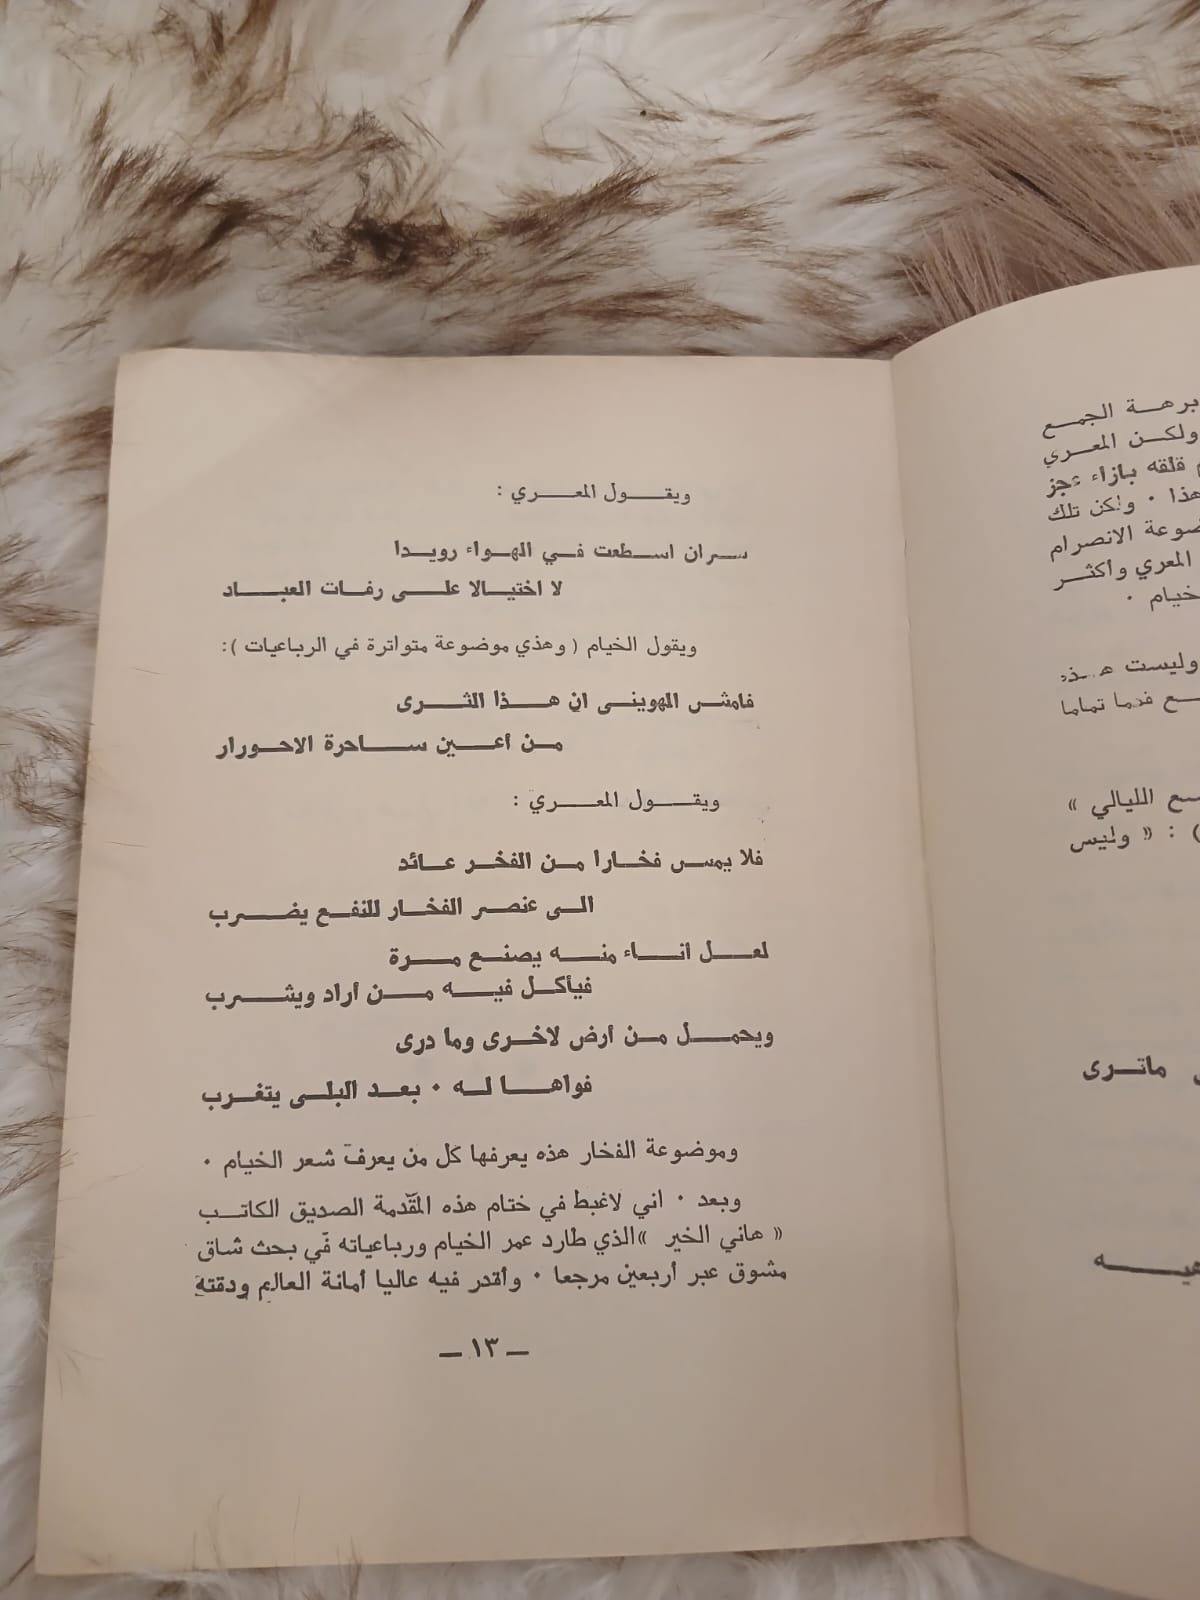 ويقول المعري :
سران اسطعت في الهواء رويدا
لا اختيالا على رفات العباد
ويقول الخيام ( وهذي موضوعة متواترة في الرباعيات ):
فامش الهوينى ان هذا الثرى
من أعين ساحرة الاحورار
ويقول المعري :
فلا يمس فخارا من الفخر عائد
الى عنصر الفخار للنفع يضرب
لعل اناء منه يصنع مرة
فيأكل فيه من أراد ويشرب
ويحمل من أرض لاخرى وما درى
فواها له ٠ بعد البلى يتغرب
وموضوعة الفخار هذه يعرفها كل من يعرف شعر الخيام ٠
وبعد ٠ اني لاغبط في ختام هذه المقدمة الصديق الكاتب
« هاني الخير » الذي طارد عمر الخيام ورباعياته في بحث شاق
مشوق عبر أربعين مرجعا ٠ وأقدر فيه عاليا أمانة العالم ودقته
— ١٣ —
برهة الجمع
ولكن المعري
قلقه بازاء عجز
هذا ٠ ولكن تلك
الانصرام
المعري وأكثر
خيام ٠
وليست هذه
فدما تماما
الليالي »
) : « وليس
ماترى